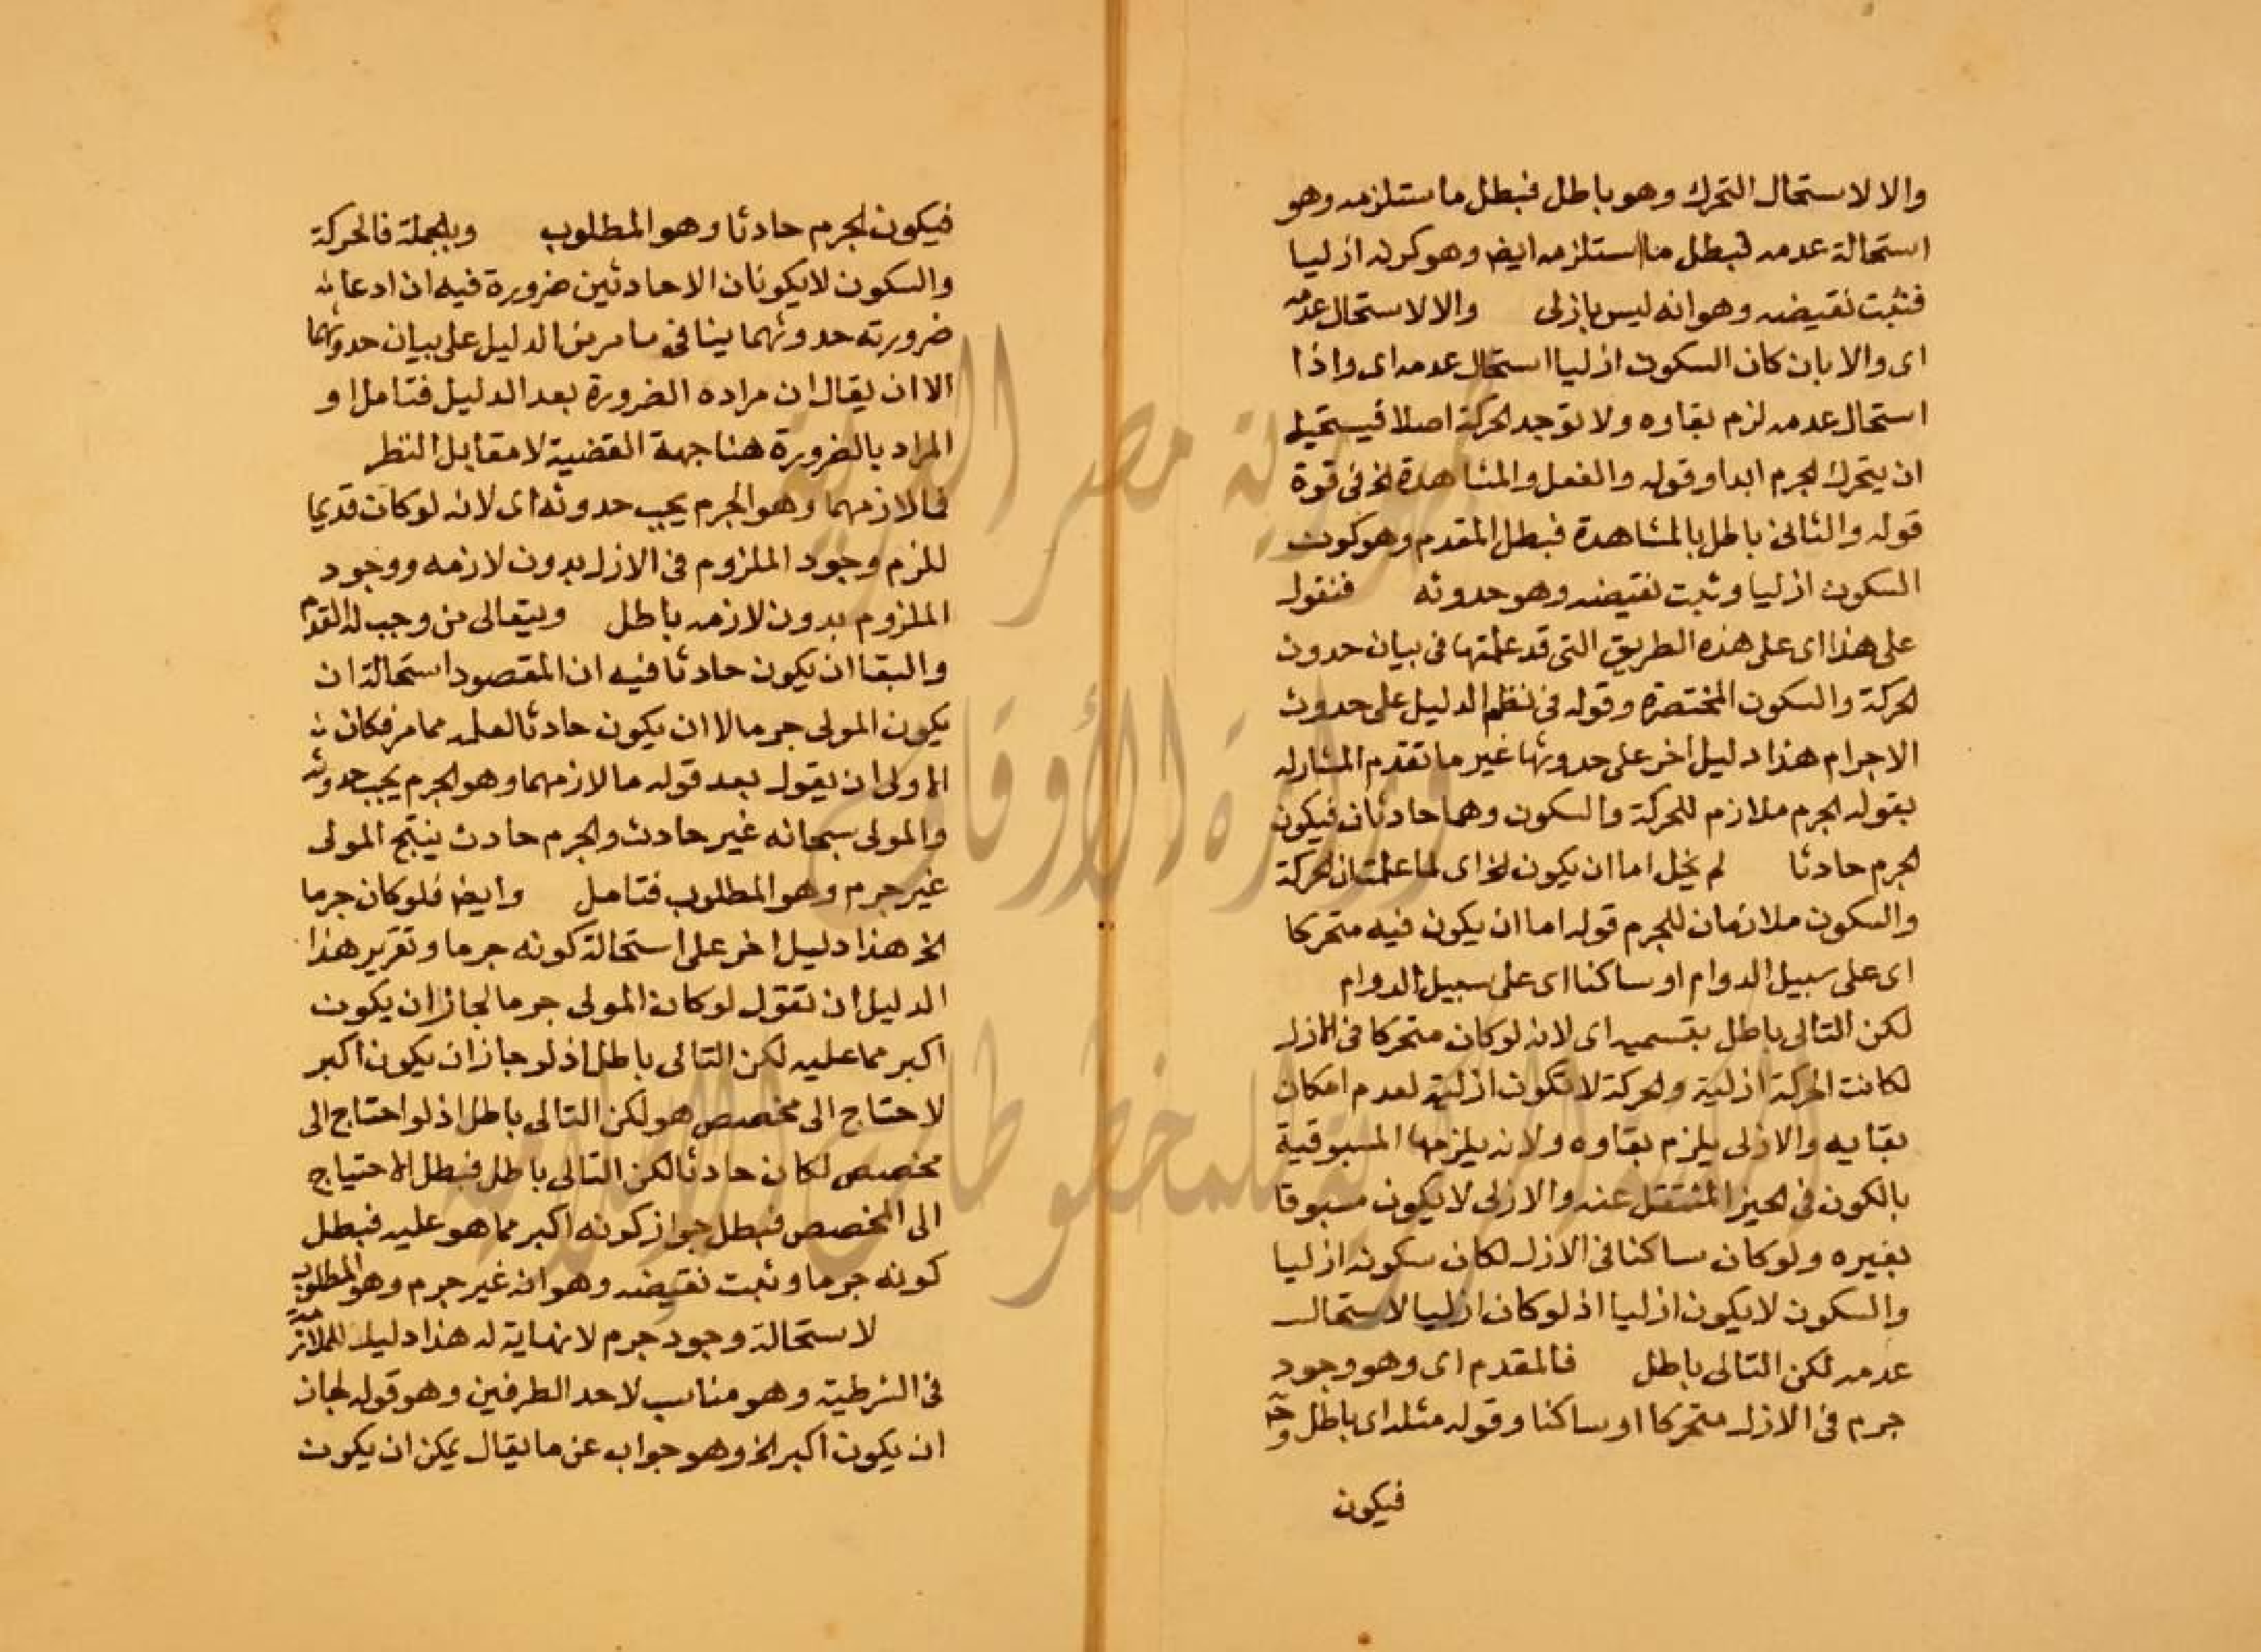 والا لاستحال التحرك وهو باطل فبطل ما ستلزمه وهو
استحالة عدمه فبطل ما استلزمه ايض وهو كونه ازليا
فثبت نقيضه وهو انه ليس بازلى والا لاستحال عدمه
اى والا بان كان السكون ازليا استحال عدمه اى واذا
استحال عدمه لزم بقاوه ولا توجد الحركة اصلا فيستحيل
ان يتحرك الجرم ابدا وقوله والفعل والمشاهدة الخ فى قوة
قوله والتالى باطل بالمشاهدة فبطل المقدم وهو كون
السكون ازليا وثبت نقيضه وهو حدوثه فنقول
على هذا اى على هذه الطريق التى قد علمتها فى بيان حدوث
الحركة والسكون المختصرة وقوله فى نظم الدليل على حدوث
الاجرام هذا دليل اخر على حدوثها غير ما تقدم المشار له
بقوله الجرم ملازم للحركة والسكون وهما حادثان فيكون
الجرم حادثا لم يخل اما ان يكون الخ اى لما علمت ان الحركة
والسكون ملازمان للجرم قوله اما ان يكون فيه متحركا
اى على سبيل الدوام او ساكنا اى على سبيل الدوام
لكن التالى باطل بقسميه اى لانه لو كان متحركا فى الازل
لكانت الحركة ازلية والحركة لا تكون ازلية لعدم امكان
بقايه والازلى يلزم بقاوه ولانه يلزمها المسبوقية
بالكون فى الحيز المنتقل عنه والازلى لا يكون مسبوقا
بغيره ولو كان ساكنا فى الازل لكان سكونه ازليا
والسكون لا يكون ازليا اذ لو كان ازليا لاستحال
عدمه لكن التالى باطل فالمقدم اى وهو وجود
جرم فى الازل متحركا او ساكنا وقوله مثله اى باطل وح
فيكون
فيكون الجرم حادثا وهو المطلوب وبالجملة فالحركة
والسكون لا يكونان الا حادثين ضرورة فيه ان ادعا
ضرورته حدوثهما ينافى ما مر من الدليل على بيان حدوثهما
الا ان يقال ان مراده الضرورة بعد الدليل فتامل او
المراد بالضرورة هنا جهة القضية لا مقابل النظر
فما لازمهما وهو الجرم يجب حدوثه اى لانه لو كان قديما
للزم وجود الملزوم فى الازل بدون لازمه ووجود
الملزوم بدون لازمه باطل ويتعالى من وجب له القدم
والبقا ان يكون حادثا فيه ان المقصود استحالة ان
يكون المولى جرما لا ان يكون حادثا لعلمه مما مر فكان
الاولى ان يقول بعد قوله ما لازمهما وهو الجرم يجب حدوثه
والمولى سبحانه غير حادث والجرم حادث ينتج المولى
غير جرم وهو المطلوب فتامل وايض فلو كان جرما
الخ هذا دليل اخر على استحالة كونه جرما وتقرير هذا
الدليل ان تقول لو كان المولى جرما لجاز ان يكون
اكبر مما عليه لكن التالى باطل اذ لو جاز ان يكون اكبر
لاحتاج الى مخصص هو لكن التالى باطل اذ لو احتاج الى
مخصص لكان حادثا لكن التالى باطل فبطل الاحتياج
الى المخصص فبطل جواز كونه اكبر مما هو عليه فبطل
كونه جرما وثبت نقيضه وهو انه غير جرم وهو المطلوب
لاستحالة وجود جرم لا نهاية له هذا دليل للملازمة
فى الشرطية وهو مناسب لاحد الطرفين وهو قوله لجاز
ان يكون اكبر الخ وهو جواب عن ما يقال يمكن ان يكون
جمهورية مصر العربية
وزارة الأوقاف
المكتبة المركزية للمخطوطات الإسلامية